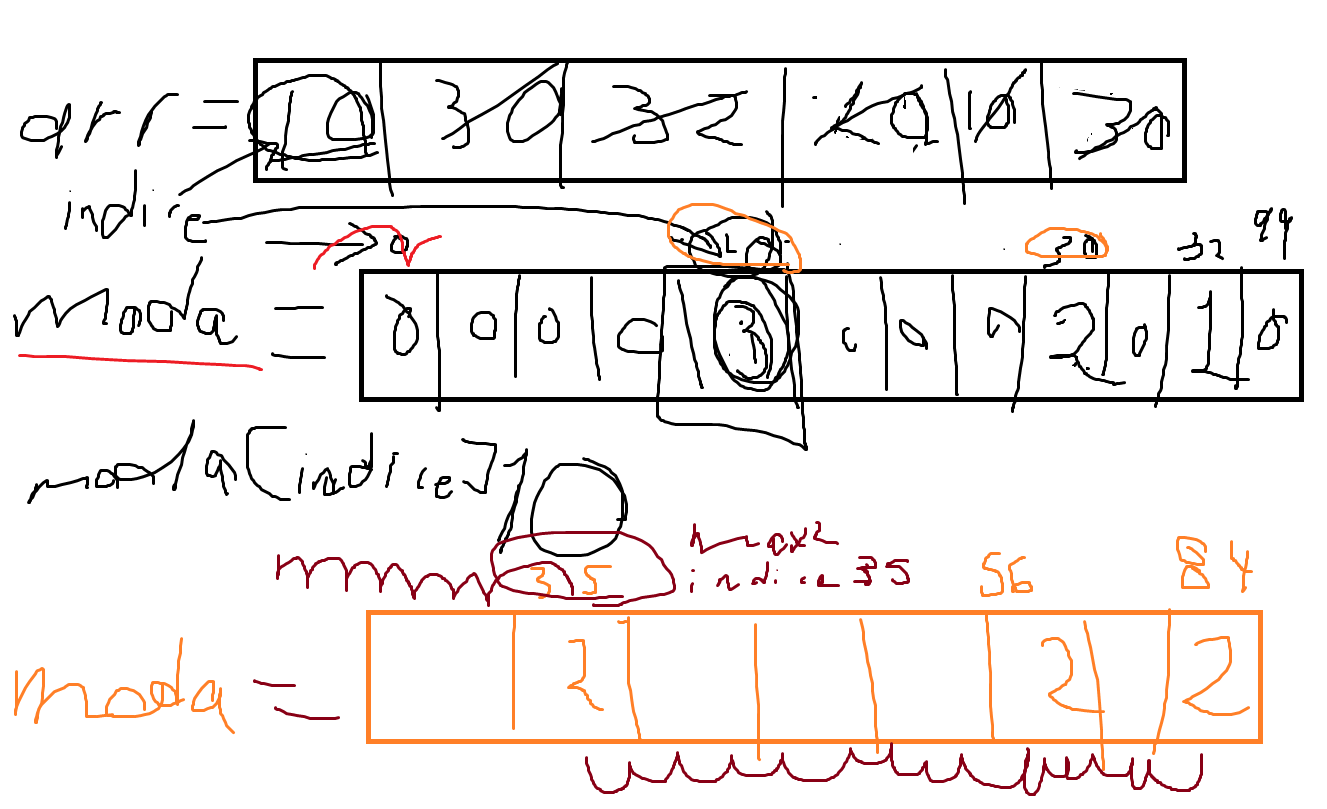 arr = 10 30 32 10 10 30
indice
0 10 30 32 99
moda = 0 0 0 0 3 0 0 0 2 0 1 0
moda[indice] 10
max 2
35 indice 35 56 84
moda = 2 2 2